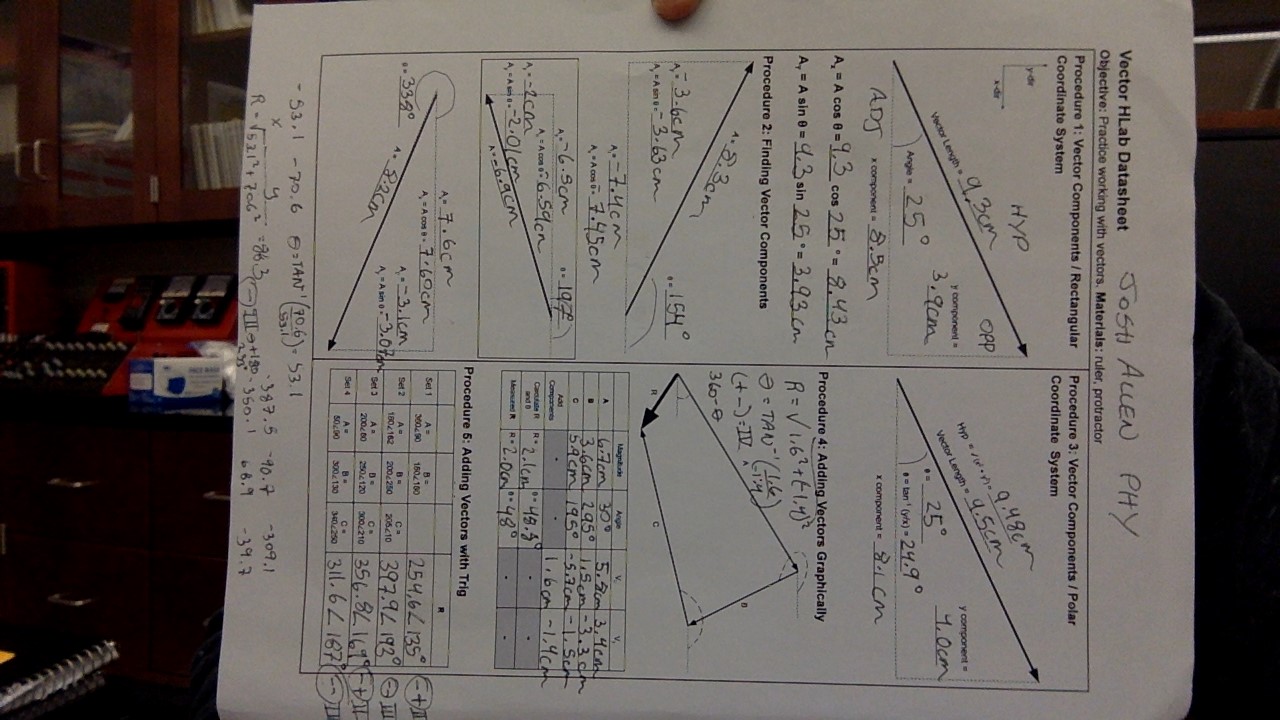 Vector HLab Datasheet JOSH ALLEN PHY
Objective: Practice working with vectors. Materials: ruler, protractor
Procedure 1: Vector Components / Rectangular
Coordinate System
y-dir
x-dir
HYP
OPP
Vector Length = 9.3cm
y component =
3.9cm
Angle = 25°
ADJ x component = 8.5cm
Aₓ = A cos θ = 9.3 cos 25 ° = 8.43 cm
Aᵧ = A sin θ = 9.3 sin 25 ° = 3.93 cm
Procedure 2: Finding Vector Components
A = 8.3cm
A = -3.6cm
A = A sin θ = -3.63cm
θ = 154°
A = -7.4cm
A = A cos θ = -7.45cm
A = -6.5cm
θ = 197°
A = A cos θ = -6.59cm
A = -2cm
A = A sin θ = -2.01cm
A = -6.9cm
A = 7.6cm
A = A cos θ = 7.60cm
θ = 338°
A = -3.1cm
A = 8.2cm
A = A sin θ = -3.07cm
Procedure 3: Vector Components / Polar
Coordinate System
Hyp = √(x² + y²) = 9.48cm
Vector Length = 9.5cm
y component =
4.0cm
θ = 25°
θ = tan⁻¹ (y/x) = 24.9°
x component = 8.1 cm
Procedure 4: Adding Vectors Graphically
R = √1.6² + (-1.4)²
θ = TAN⁻¹ (1.6/-1.4)
(+ -) = IV
360-θ
A
B
C
R
Magnitude Angle Vₓ Vᵧ
A 6.7cm 30° 5.8cm 3.4cm
B 3.6cm 295° 1.5cm -3.3cm
C 5.9cm 195° -5.7cm -1.5cm
Add Components - - 1.6cm -1.4cm
Calculate R and θ R = 2.1cm θ = 48.8° - -
Measured R R = 2.0cm θ = 48° - -
Procedure 5: Adding Vectors with Trig
R
Set 1 A = 360∠90 B = 180∠180 254.6∠135° (-+) II
Set 2 A = 180∠182 B = 200∠250 C = 205∠10 397.9∠193° III
Set 3 A = 200∠60 B = 250∠120 C = 300∠210 356.8∠169° (-+) II
Set 4 A = 50∠90 B = 300∠130 C = 340∠250 311.6∠187° (--) III
-53.1 -70.6 θ = TAN⁻¹ (70.6/53.1) = 53.1
x y
R = √53.1² + 70.6² = 88.3 (--) III → +180
-387.5 -90.7 -309.1
-350.1 68.9 -39.7